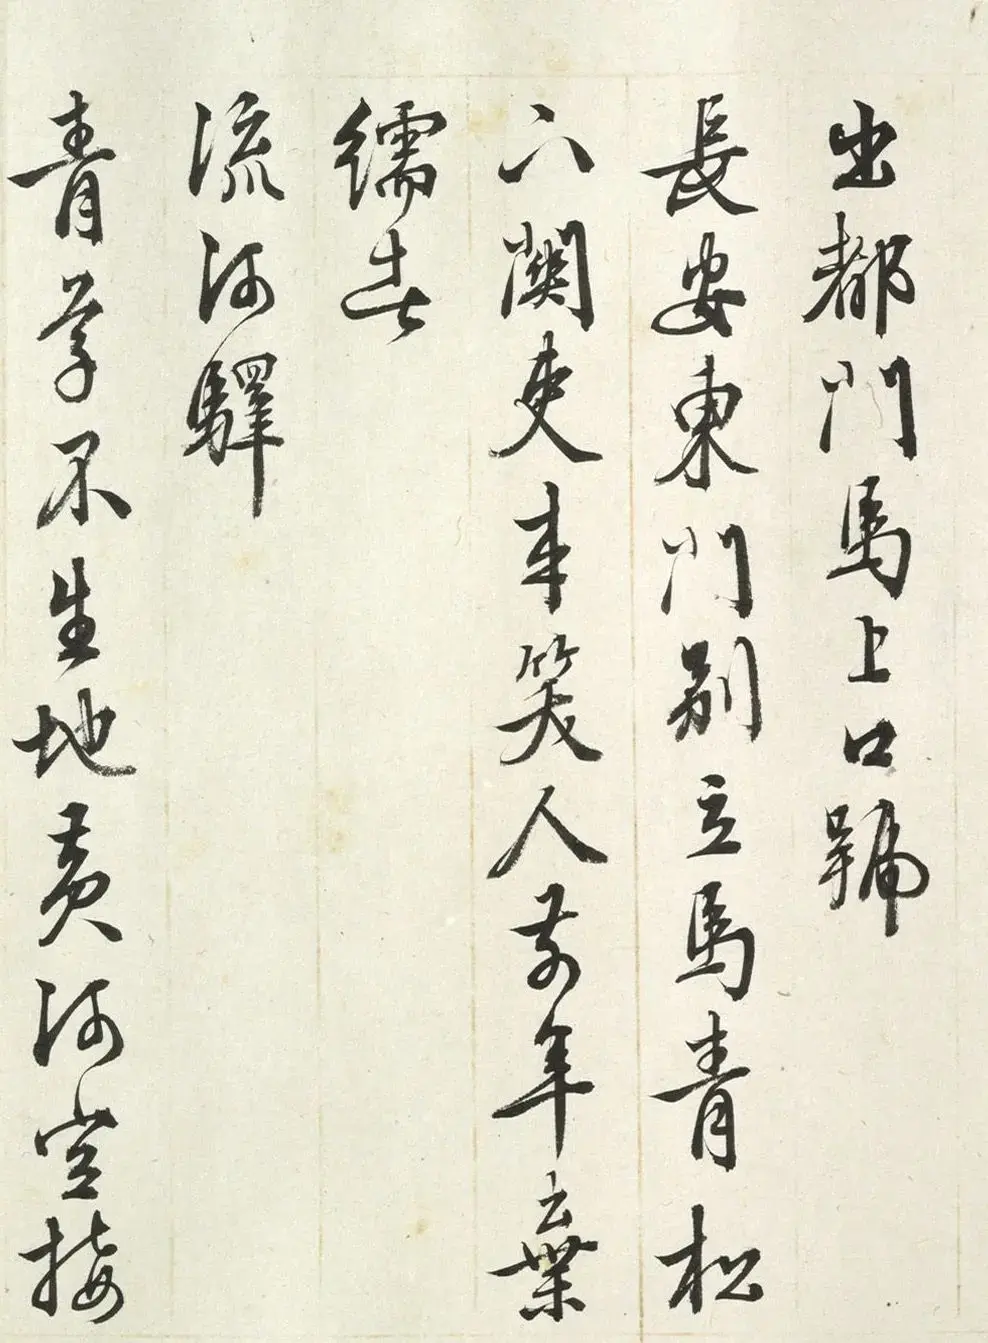 出都門馬上口號
長安東門別立馬青松
下關吏來笑人前年棄
繻者
流河驛
青草不生地黃河空接